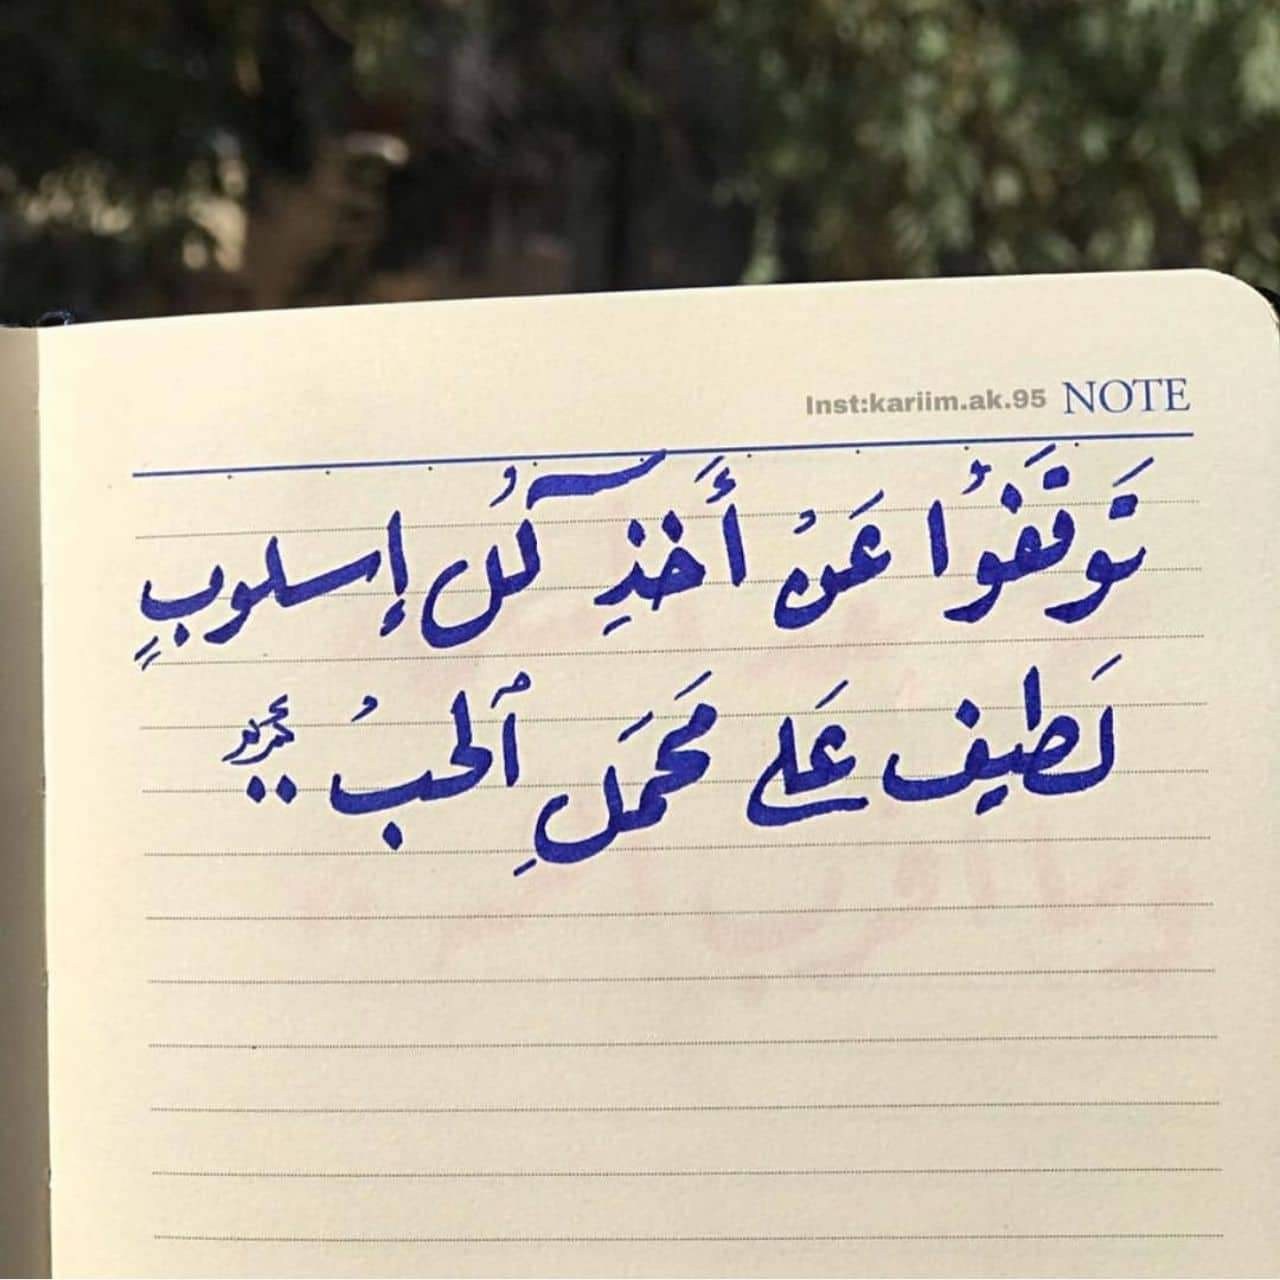 Inst:kariim.ak.95 NOTE
تَوقفَوُا عَنْ أَخذِ كُل إسلوبٍ
لَطيف عَلى مَحمَلِ ٱلحبُ ..